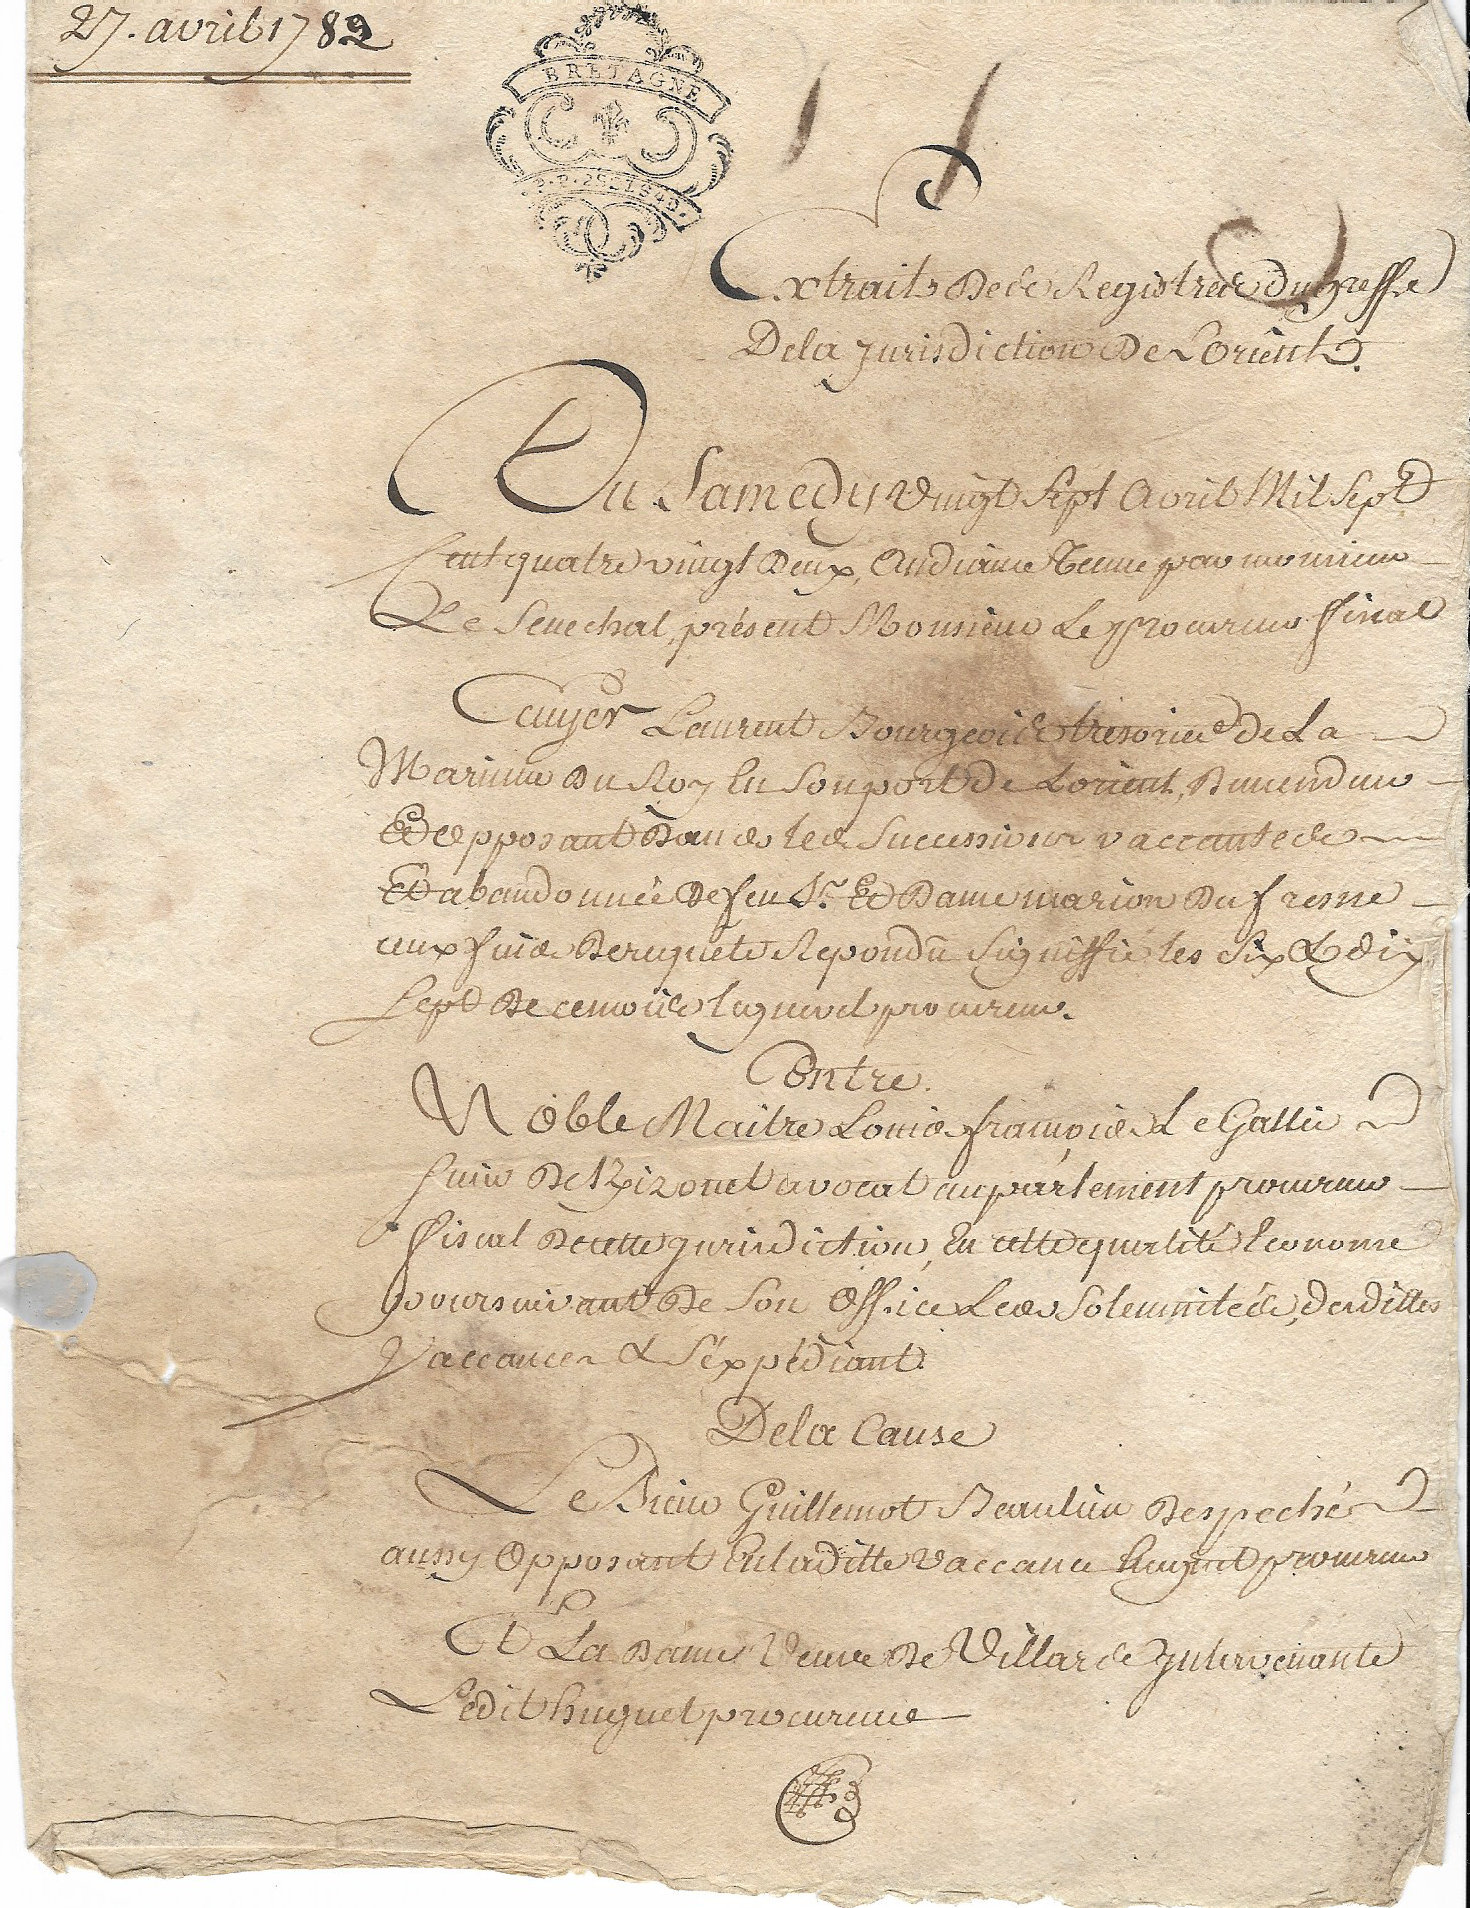 27. avril 1782
BRETAGNE
Extraits Des Registres du greffe
De la jurisdiction De Lorient.
Du Samedy vingt sept avril Mil Sept
Cent quatre vingt Deux, Audiance Tenue par monsieur
Le Senechal, présent Monsieur Le procureur fiscal
Ecuyer Laurent Bourgeois tresorier de La
Marinne Du Roy En Son port de Lorient, Demendeur
Et opposant Dans les Successions vaccantes
Et abandonnée De feu Sr. Et Dame marion Dufresne
aux fins De requete Repondu Signiffié les six & dix
Sept De ce mois huguet procureur.
Contre
Noble Maitre Louis françois Le Gallic
Avocat au parlement procureur
fiscal De cette jurisdiction, En cette qualité Econome
poursuivant De Son Office Les Solemnités, desdittes
Vaccances & S'expediant
De la Cause
Le Sieur Guillemot Beaulieu Despeché
aussy Opposant En laditte vaccance huguet procureur
Et La Dame Veuve De Villars Intervenante
Ledit huguet procureur